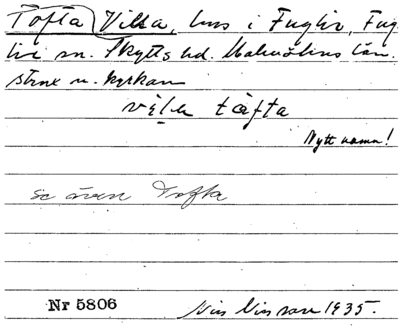 Tofta Villa, hus i Fuglie, Fug
lie sn. Skytts hd. Malmöhus län.
strax n. kyrkan
vila tåfta
Nytt namn!
se även Tofta
Nr 5806
Nils Nilsson 1935.